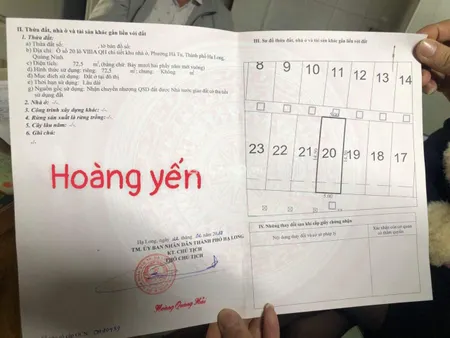 II. Thửa đất, nhà ở và tài sản khác gắn liền với đất
1. Thửa đất:
a) Thửa đất số: , tờ bản đồ số:
b) Địa chỉ: Ô số 20 lô VIIIA QH chi tiết khu nhà ở, Phường Hà Tu, Thành phố Hạ Long,
Quảng Ninh
c) Diện tích: 72,5 m², (bằng chữ: Bảy mươi hai phẩy năm mét vuông)
d) Hình thức sử dụng: riêng: 72,5 m²; chung: Không m²
đ) Mục đích sử dụng: Đất ở tại đô thị
e) Thời hạn sử dụng: Lâu dài
g) Nguồn gốc sử dụng: Nhận chuyển nhượng QSD đất được Nhà nước giao đất có thu tiền
sử dụng đất.
2. Nhà ở: -/-.
3. Công trình xây dựng khác: -/-.
4. Rừng sản xuất là rừng trồng: -/-.
5. Cây lâu năm: -/-.
6. Ghi chú:
-/-
Hoàng yến
Hạ Long, ngày tháng năm
TM. ỦY BAN NHÂN DÂN THÀNH PHỐ HẠ LONG
KT. CHỦ TỊCH
PHÓ CHỦ TỊCH
III. Sơ đồ thửa đất, nhà ở và tài sản khác gắn liền với đất
8 9 10 11 12 13 14
23 22 21 20 19 18 17
IV. Những thay đổi sau khi cấp giấy chứng nhận
Nội dung thay đổi và cơ sở pháp lý
Xác nhận của cơ quan
có thẩm quyền